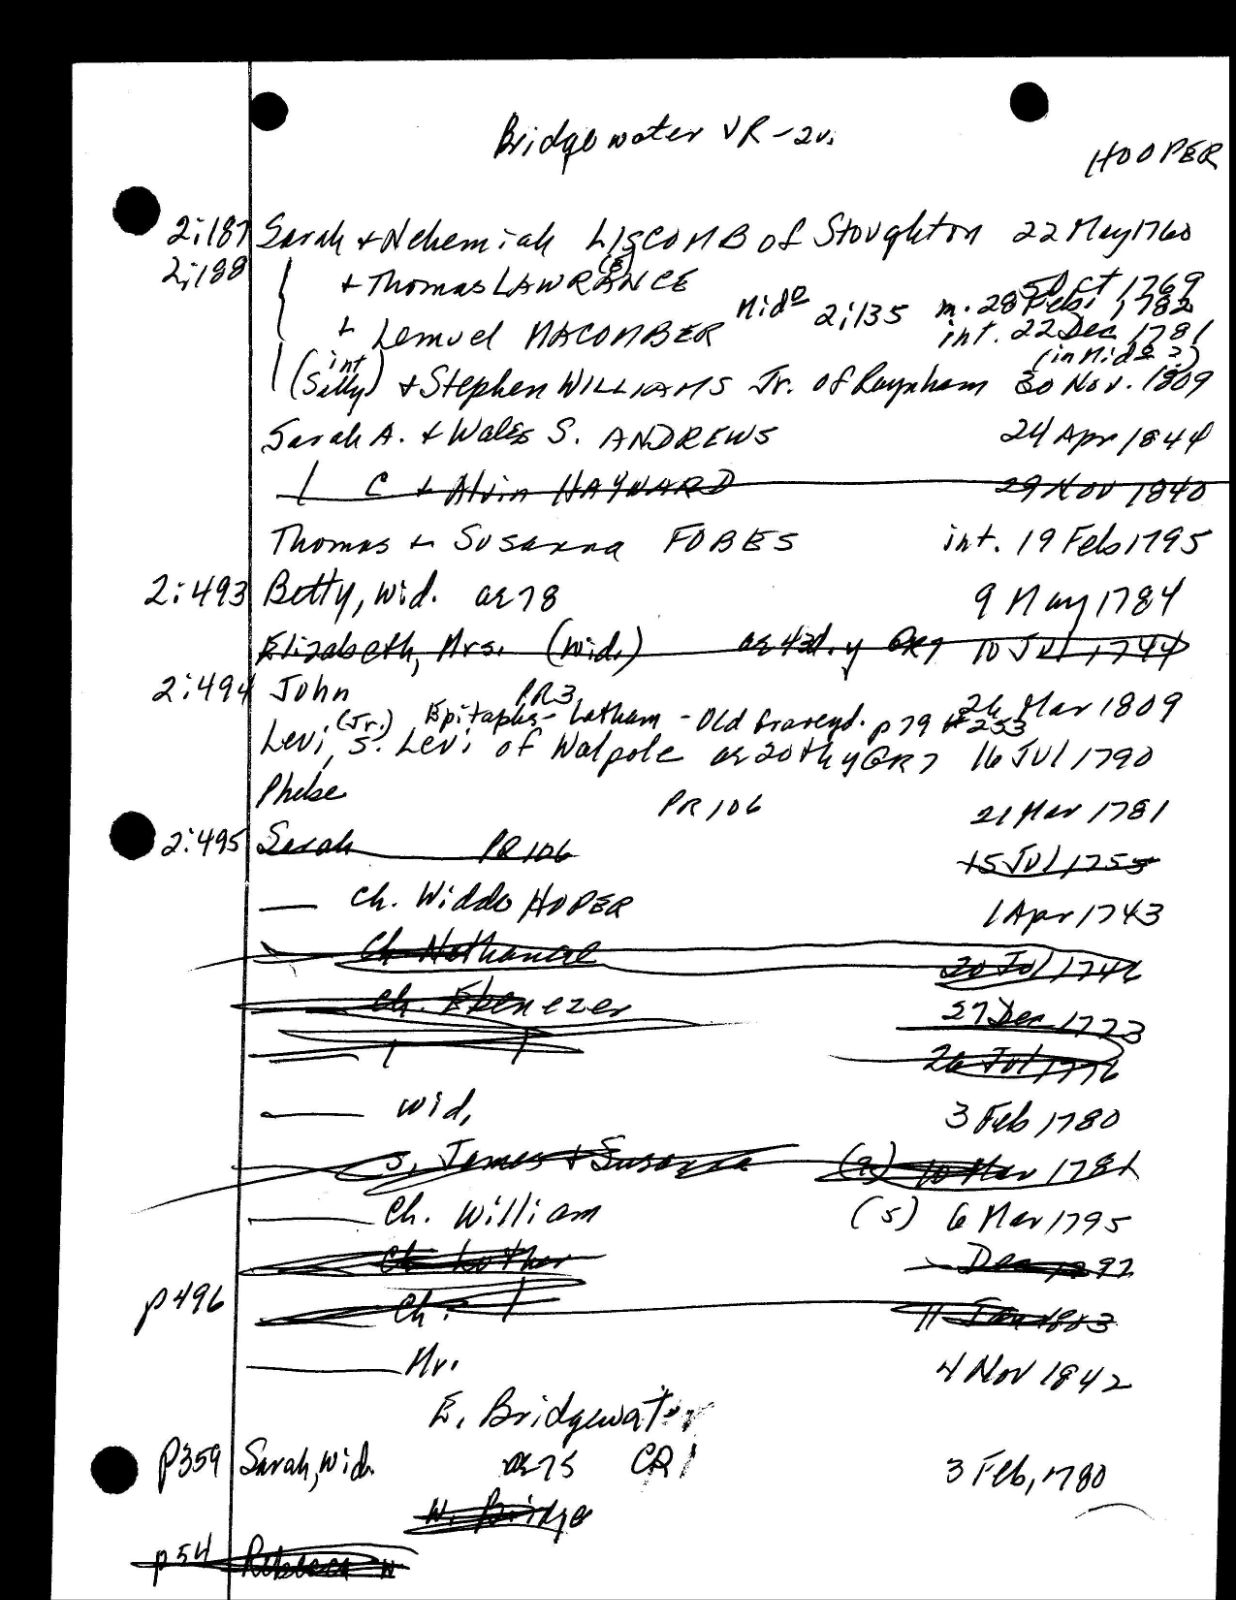 Bridgewater VR - 2v.
HOOPER
2:187 Sarah + Nehemiah LISCOMB of Stoughton 22 May 1760
2:188 + Thomas LAWRANCE (E) 5 Oct 1769
+ Lemuel MACOMBER Mido 2:135 m. 28 Feb 1782
int. 22 Dec 1781
(int) (in Mido ?)
(Sally) + Stephen WILLIAMS Jr. of Raynham 30 Nov. 1809
Sarah A. + Wales S. ANDREWS 24 Apr 1844
C + Alvin HAYWARD 29 Nov 1840
Thomas + Susanna FOBES int. 19 Feb 1795
2:493 Betty, wid. ae 78 9 May 1784
Elizabeth, Mrs. (wid.) ae 43d. y GR7 10 Jul 1744
2:494 John PR3 24 Mar 1809
(Jr.) Epitaphs - Latham - Old Graveyd. p 79 # 253
Levi, s. Levi of Walpole ae 20th y GR7 16 Jul 1790
Phebe PR106 21 Mar 1781
2:495 Sarah PR106 15 Jul 1755
— Ch. Widdo HOPER 1 Apr 1743
— Ch. Nathanael 20 Jul 1746
— Ch. Ebenezer 27 Dec 1773
— 26 Jul 1776
— wid. 3 Feb 1780
— s. James + Susanna (9) 10 Mar 1781
— Ch. William (5) 6 Mar 1795
— Ch. Luther Dec 1797
p 496 — Ch. 11 Jan 1803
— Mr. 4 Nov 1842
E. Bridgewater
p359 Sarah, wid. ae 75 CR1 3 Feb, 1780
W. Bridge
p 54 Rebecca W